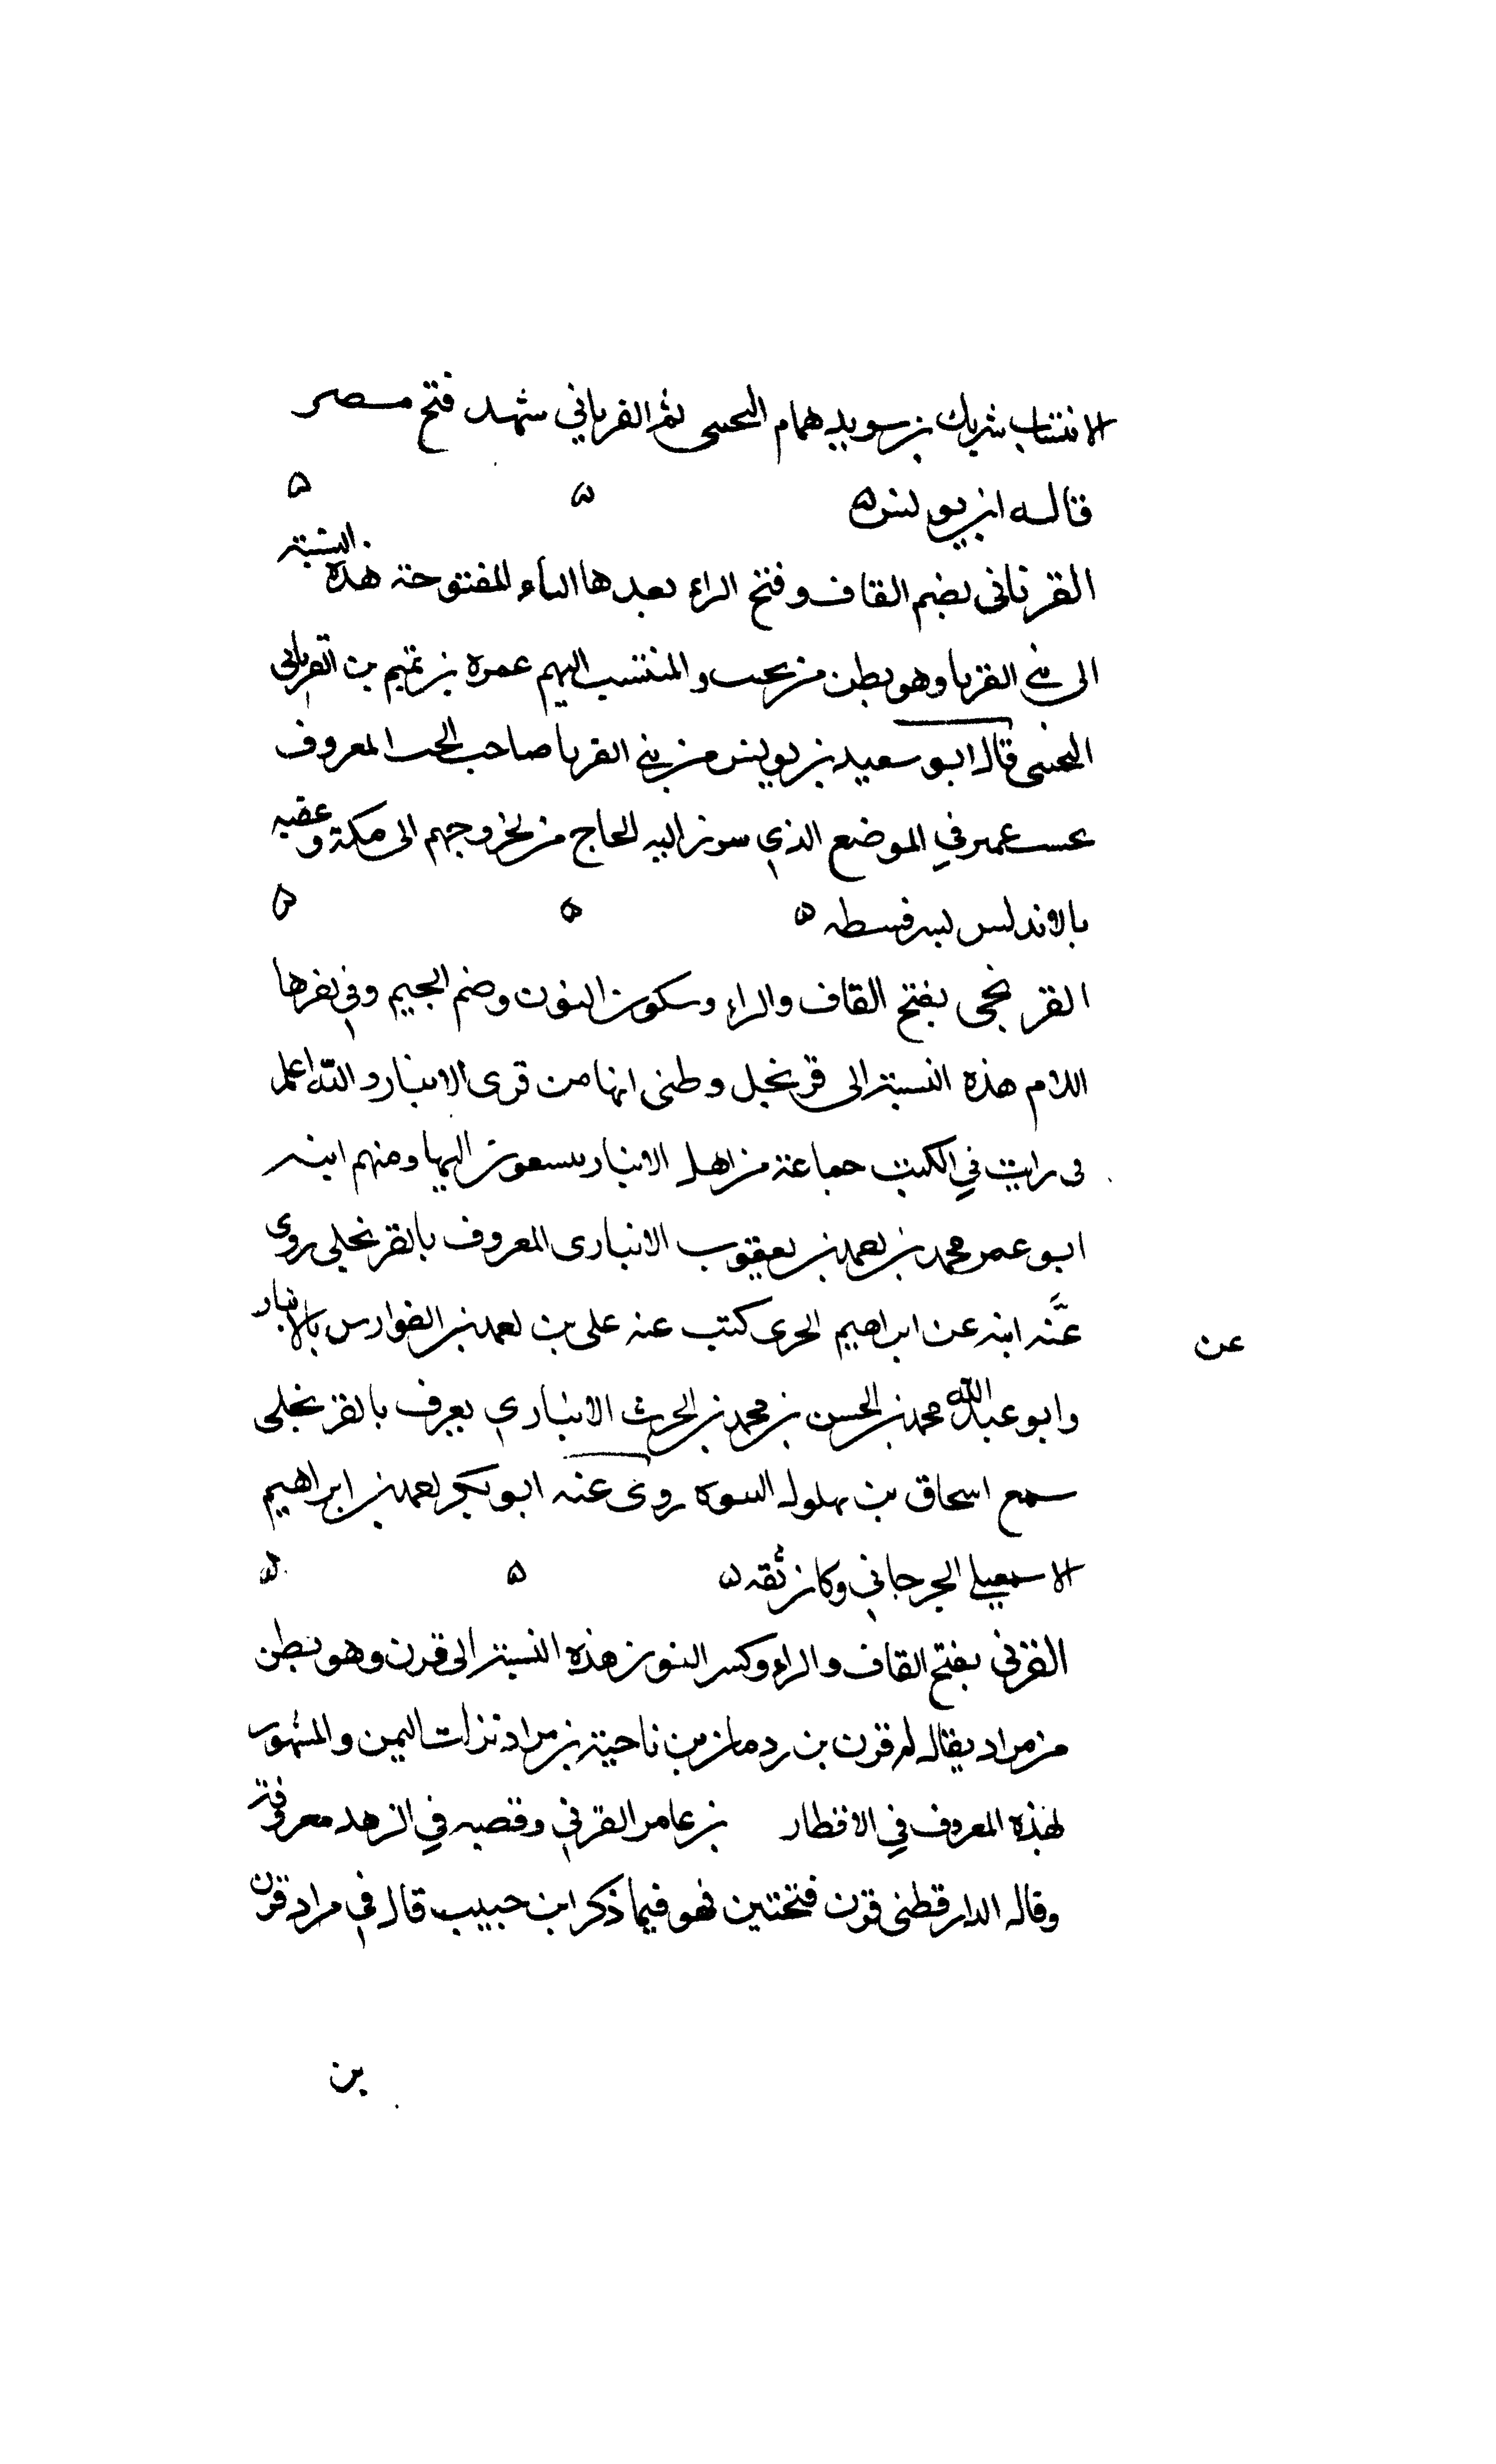 الانتساب شريك بن سويد همام التجيبى ثم القرناني شهد فتح مصر
قاله ابن يونس ه ه ه
القرنانى بضم القاف وفتح الراء بعدها الياء المفتوحة هذه النسبة
الى بني القرنا وهو بطن من تجيب والمنتسب اليهم عمرة بن تميم بن القرنانى
التجيبى قال ابو سعيد بن يونس من بني القرنا صاحب الجب المعروف
بجب عميره في الموضع الذي يبرز اليه الحاج من لخروجهم الى مكة وعقبه
بالاندلس بسرقسطه ه ه ه
القرنجى بفتح القاف والراء وسكون النون وضم الجيم وفى نفرها
اللام هذه النسبة الى قرنجل وظنى انها من قرى الانبار والله اعلم
فى رايت في الكتب جماعة من اهل الانبار ينسبون اليها ومنهم ابنه
ابو عمر محمد بن احمد بن يعقوب الانبارى المعروف بالقرنجلى روى
عنه ابنه عن ابراهيم الحربى كتب عنه على بن احمد بن الفوارس بالانبار
عن
وابو عبد الله محمد بن الحسن بن محمد بن الحرث الانباري يعرف بالقرنجلى
سمع اسحاق بن بهلول روى عنه ابو بكر احمد بن ابراهيم
الاسمعيلي الجرجاني وكان ثقه ه ه ه
القرني بفتح القاف والراء وكسر النون هذه النسبة الى قرن وهو بطن
من مراد يقال له قرن بن ردمان بن ناجية بن مراد نزلت اليمن والمشهور
لهذه المعروف في الاقطار بن عامر القرني وقصبه في الزهد معروفة
وقال الدارقطنى قرن فتحتين فهو فيما ذكر ابن حبيب قال في مراد قرن
بن